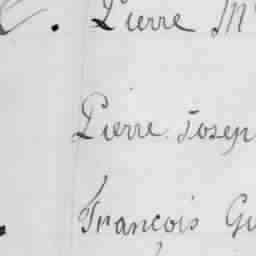 Pierre M
Pierre Josep
François Gu